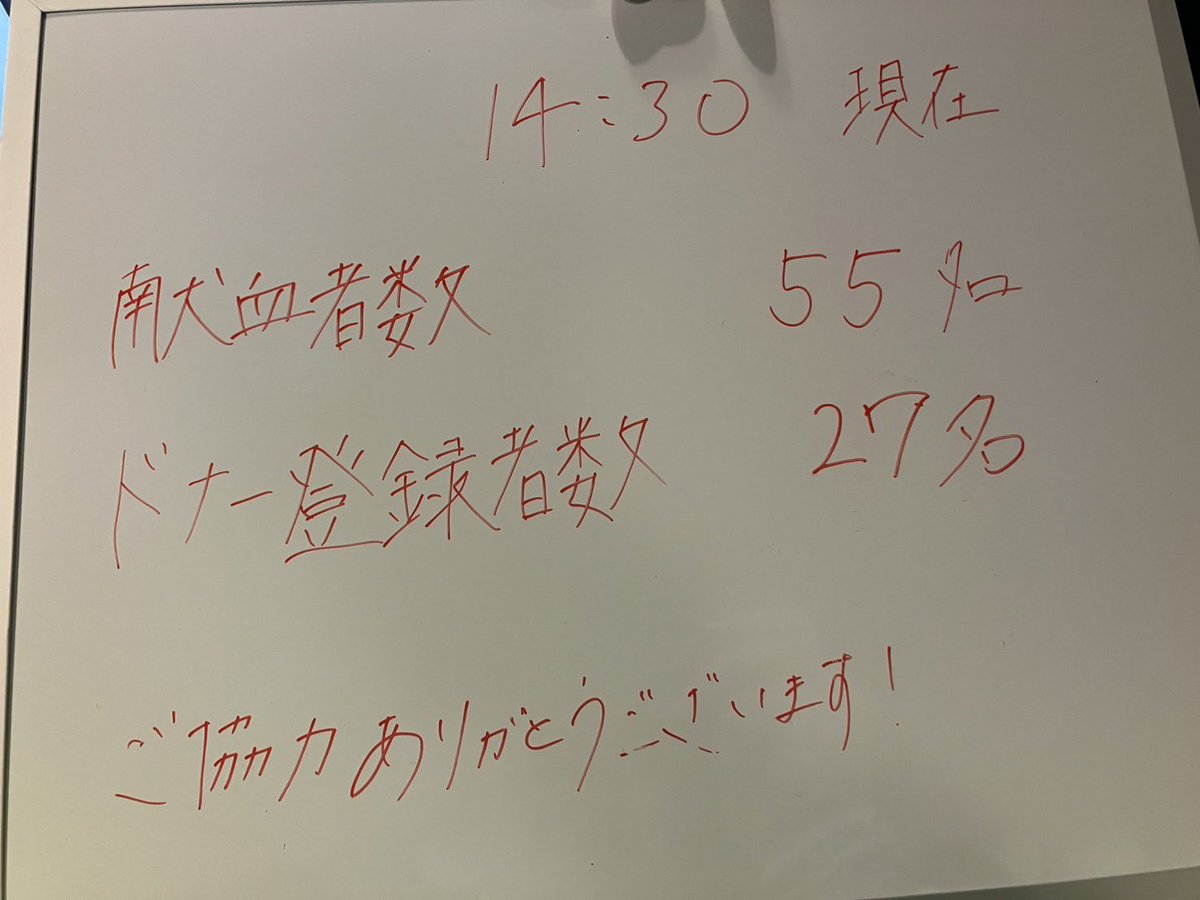 14:30 現在
献血者数 55名
ドナー登録者数 27名
ご協力ありがとうございます!